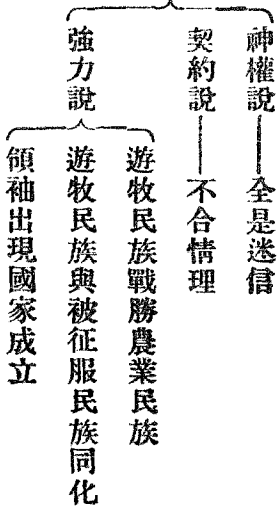 神權說——全是迷信
契約說——不合情理
強力說
遊牧民族戰勝農業民族
遊牧民族與被征服民族同化
領袖出現國家成立